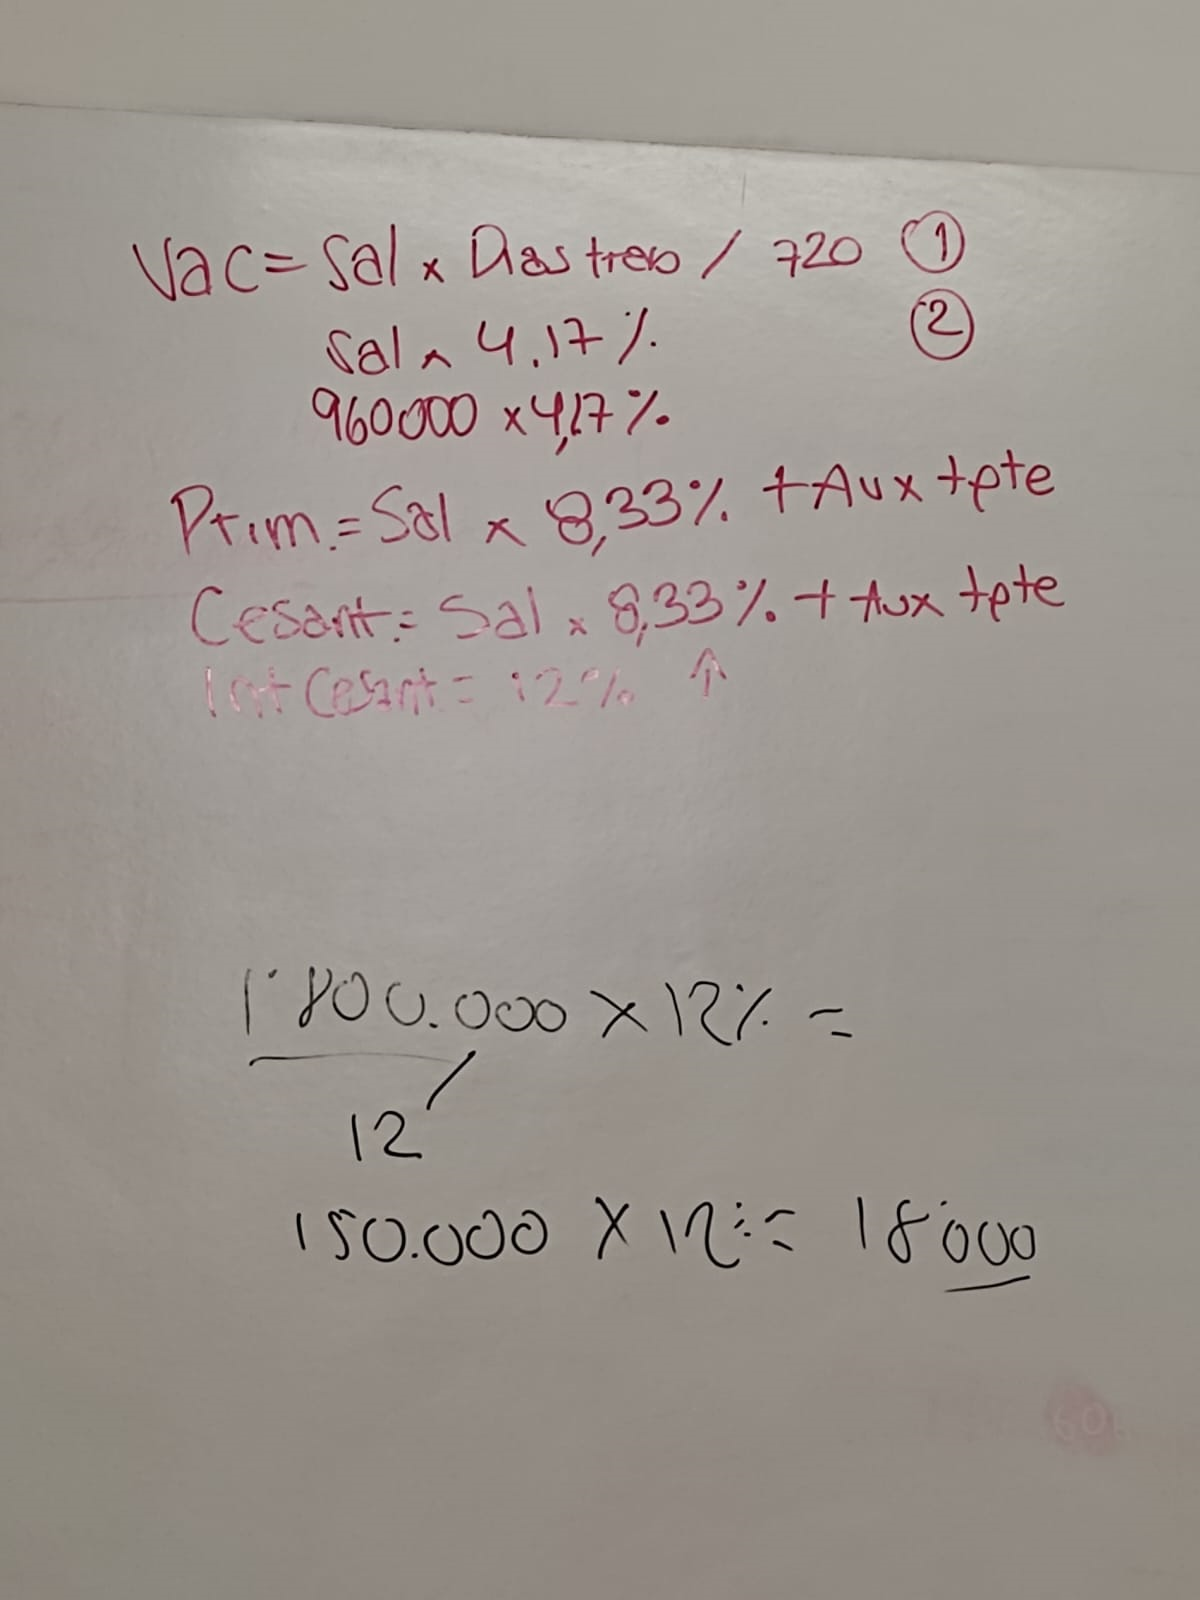 Vac = Sal x Dias treb / 720 ①
Sal x 4.17 % ②
960000 x 4,17 %
Prim. = Sal x 8,33% + Aux tpte
Cesant. = Sal x 8,33 % + Aux tpte
Int Cesant = 12% ↑
1'800.000 X 12% =
12
150.000 X 12% = 18'000
60